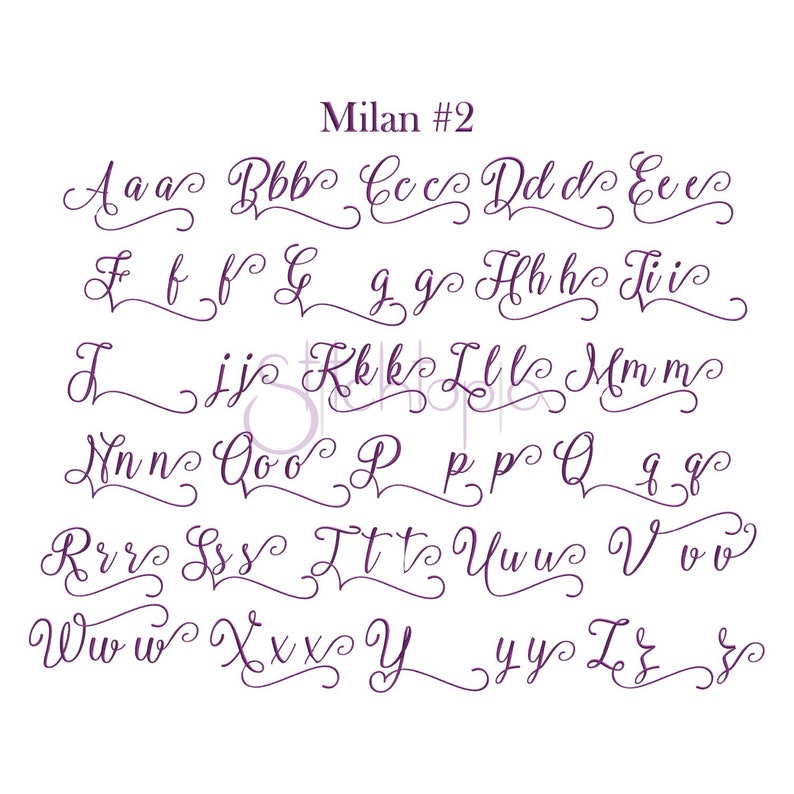 Milan #2
Aaa Bbb Ccc Ddd Eee
F f f G g g Hhh Iii
J j j Kkk Lll Mmm
Nnn Ooo P p p Q q q
Rrr Sss Ttt Uuu V v v
Www Xxx Y y y Zzz
Stitchtopia